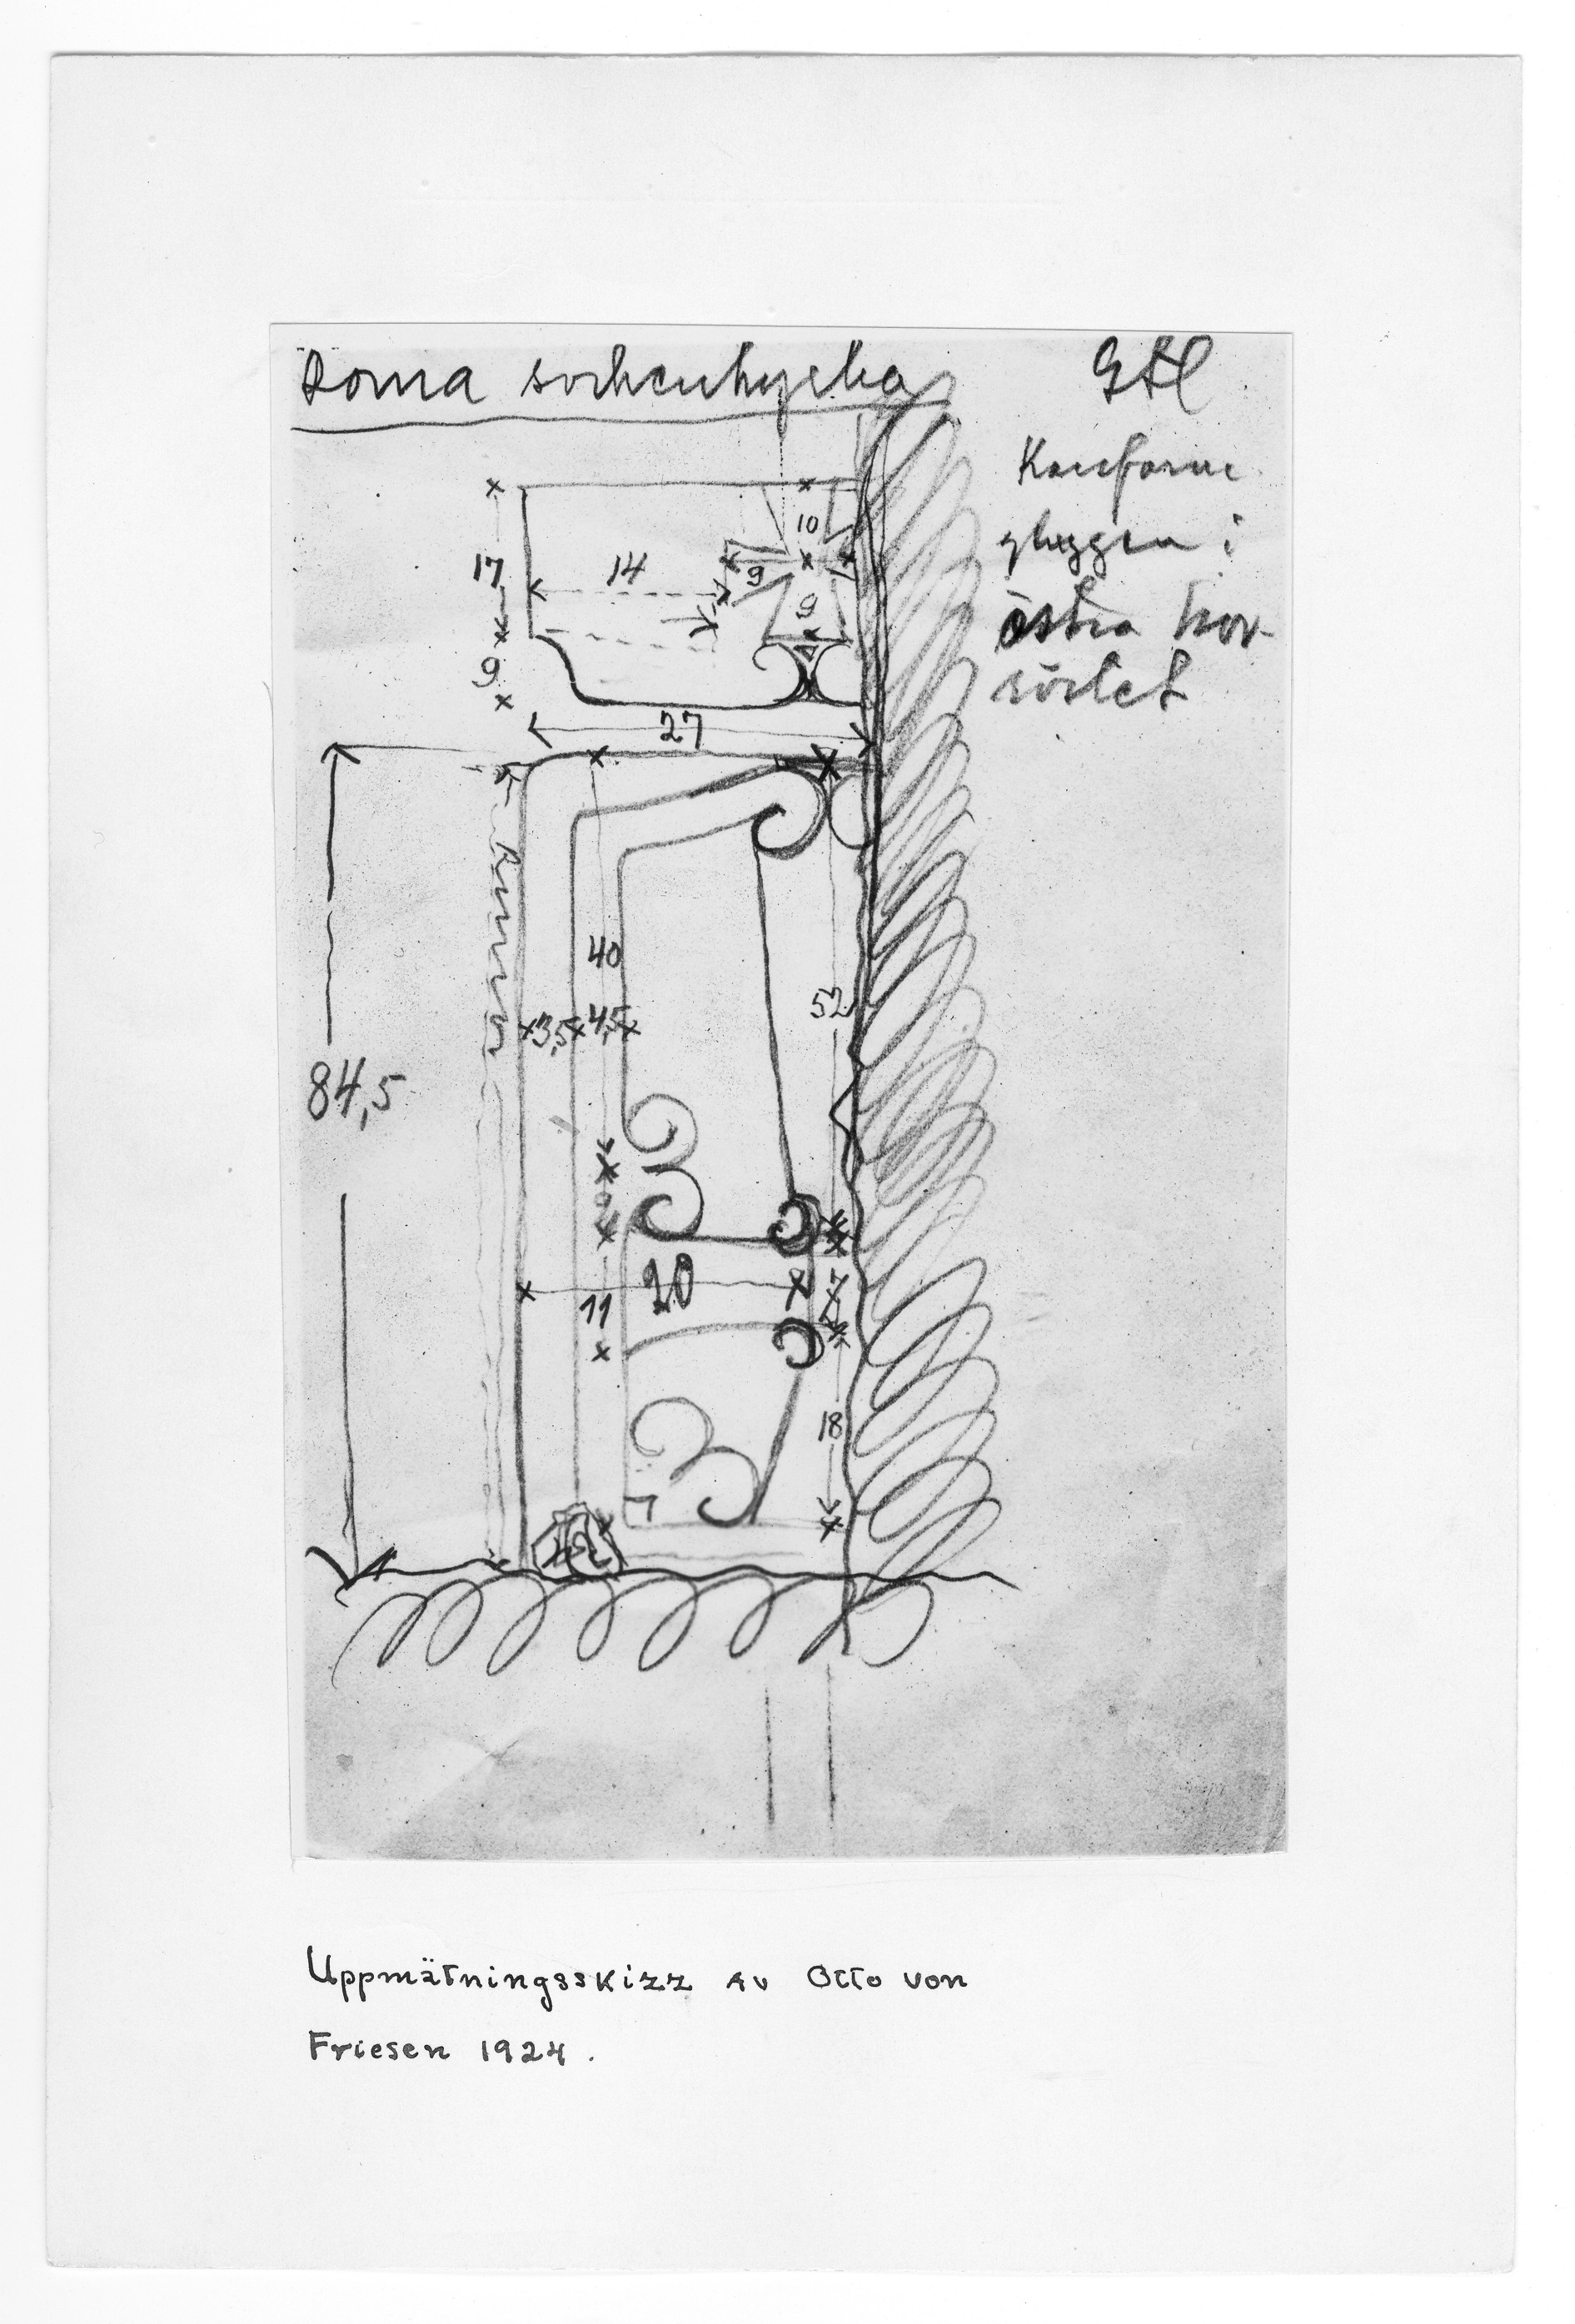 Roma sockenkyrka
Gtl
Korsform
gluggen i
östra kor-
röstet
17
14
10
9
9
9
27
Runor
40
52
3,5
4,5
84,5
20
11
7
18
Uppmätningsskizz av Otto von
Friesen 1924.